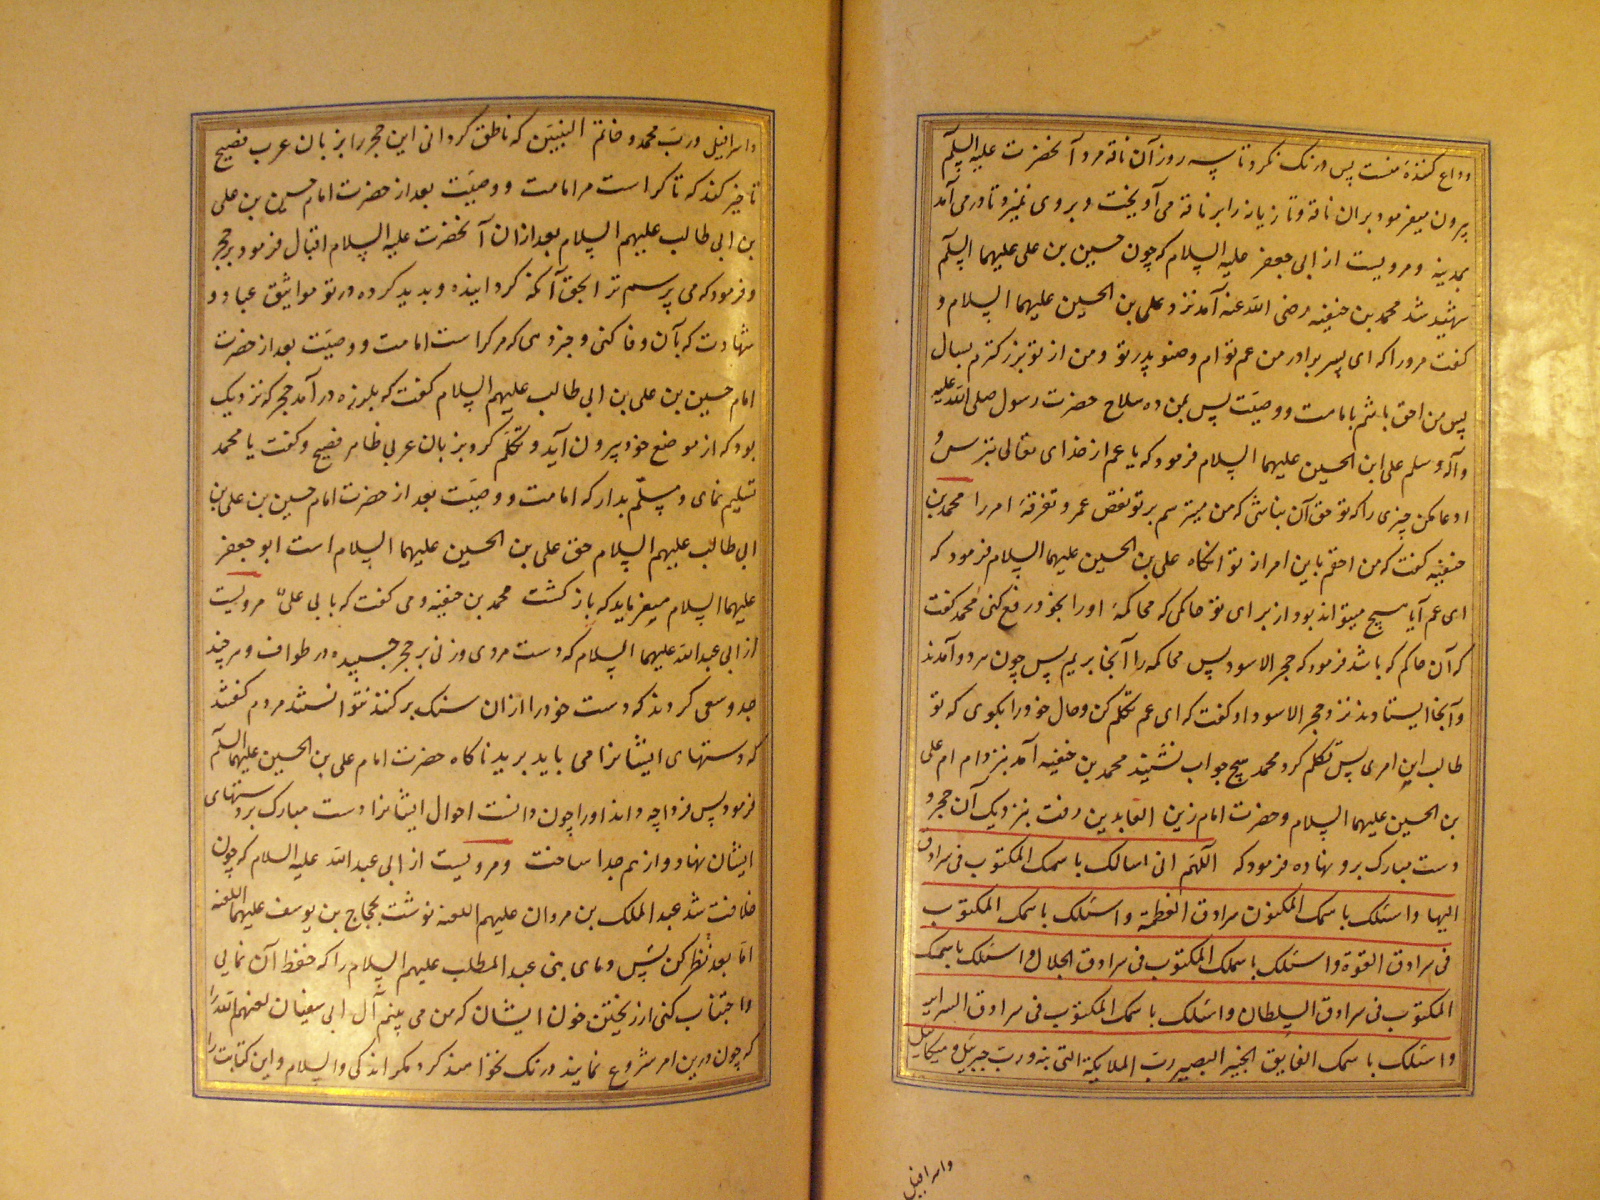 وداع کننده منست پس درنک نکرد تا سه روز آن ناقه مرد آنحضرت علیه السلم
بیرون میفرمود بران ناقه و تازیانه را بر ناقه می‌آویخت و بروی نمیزد تا در می‌آمد
بمدینه ومرویست از ابی جعفر علیه السلام که چون حسین بن علی علیهما السلم
شهید شد محمد بن حنفیه رضی الله عنه آمد نزد علی بن الحسین علیهما السلام و
کفت مرورا که ای پسر برادر من عم توام وصنو پدر تو ومن از تو بزرکترم بسال
پس من احق باشم بامامت ووصیت پس بمن ده سلاح حضرت رسول صلی الله علیه
وآله وسلم علی ابن الحسین علیهما السلام فرمود که یا عم از خدای تعالی بترس و
ادعا مکن چیزی را که تو حق آن نباشی که من میترسم بر تو نقص عمر وتفرقهٔ امر را محمد بن
حنفیه کفت که من احقم باین امر از تو انکاه علی بن الحسین علیهما السلام فرمود که
ای عم آیا هیچ میتواند بود از برای تو حاکمی که محاکمهٔ اورا بخود رفع کنی محمد کفت
که آن حاکم که باشد فرمود که حجر الاسود پس محاکمه را آنجا بریم پس چون هر دو آمدند
وآنجا ایستادند نزد حجر الاسود او کفت که ای عم تکلم کن وحال خود را بکوی که تو
طالب این امری پس تکلم کرد محمد هیچ جواب نشنید محمد بن حنفیه آمد بنزد امام علی
بن الحسین علیهما السلام وحضرت امام زین العابدین رفت بنزدیک آن حجر و
دست مبارک برو نهاده فرمود که اللهم انی اسالک باسمک المکتوب فی سرادق
البهاء واسئلک باسمک المکتوب فی سرادق العظمة واسئلک باسمک المکتوب
فی سرادق القوة واسئلک باسمک المکتوب فی سرادق الجلال واسئلک باسمک
المکتوب فی سرادق السلطان واسئلک باسمک المکتوب فی سرادق السرایر
واسئلک باسمک الفایق الخبیر البصیر رب الملایکة الثمانیة ورب جبرئیل ومیکائیل
واسرافیل
واسرافیل ورب محمد وخاتم النبیین که ناطق کردانی این حجر را بزبان عرب فصیح
تا خبر کند که تا کراست مر امامت ووصیت بعد از حضرت امام حسین بن علی
بن ابی طالب علیهم السلام بعد ازان آنحضرت علیه السلام اقبال فرمود بر حجر
وفرمود که می پرسم ترا بحق آنکه کردانیده وبدید کرده در تو مواثیق عباد و
شهادت که بآن وفا کنی وخبر دهی که مرکراست امامت ووصیت بعد از حضرت
امام حسین بن علی بن ابی طالب علیهم السلام کفت که بلرزه در آمد حجر که نزدیک
بود که از موضع خود بیرون آید وتکلم کرد بزبان عربی ظاهر فصیح وکفت یا محمد
تسلیم نمای ومسلم بدار که امامت ووصیت بعد از حضرت امام حسین بن علی بن
ابی طالب علیهم السلام حق علی بن الحسین علیهما السلام است ابو جعفر
علیهما السلام میفرماید که بازکشت محمد بن حنفیه ومی کفت که بابی علی مرویست
از ابی عبدالله علیهما السلام که دست مردی وزنی بر حجر چسبیده در طواف وهر چند
جد وسعی کردند که دست خودرا ازان سنک برکنند نتوانستند مردم کفتند
که دستهای ایشانرا می باید برید ناکاه حضرت امام علی بن الحسین علیهما السلم
فرمود پس فرواچه داند اورا چون دانست احوال ایشانرا دست مبارک بر دستهای
ایشان نهاد واز هم جدا ساخت ومرویست از ابی عبدالله علیه السلام که چون
خلافت شد عبدالملک بن مروان علیهم اللعنه نوشت بحجاج بن یوسف علیهما اللعنه
اما بعد نظر کن پس دمای بنی عبدالمطلب علیهم السلام را که حفظ آن نمایی
واجتناب کنی از ریختن خون ایشان که من می بینم آل ابی سفیان لعنهم الله را
که چون درین امر شروع نمایند درنک نخواهند کرد مکر اندکی والسلام واین کتابت را